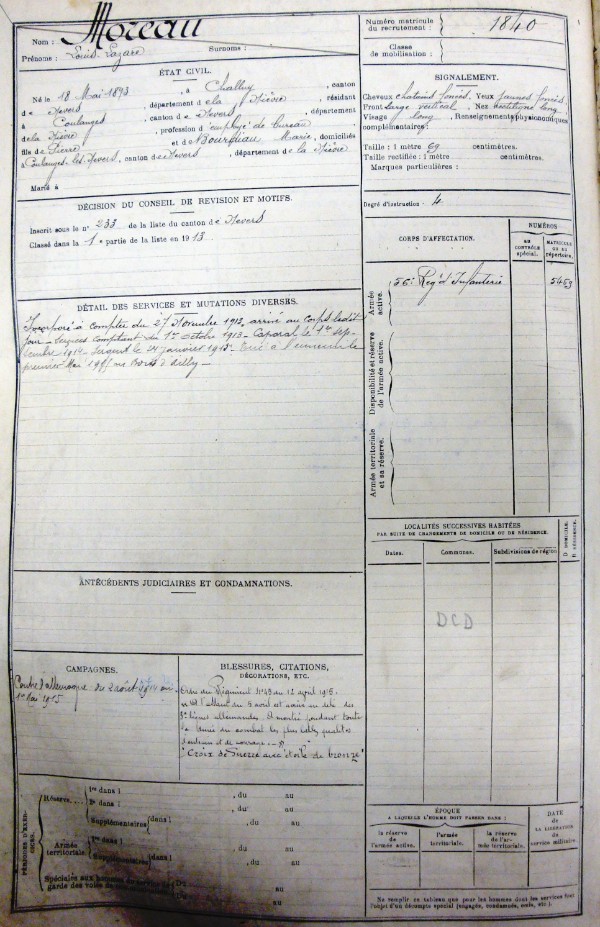 Nom : Moreau
Prénoms : Louis Lazare Surnoms :
Numéro matricule du recrutement : 1840
Classe de mobilisation :
ÉTAT CIVIL.
Né le 18 Mai 1893, à Challuy, canton
de Nevers, département de la Nièvre, résidant
à Coulanges, canton de Nevers, département
de la Nièvre, profession d'employé de bureau
fils de Pierre et de Bourdiau Marie, domiciliés
à Coulanges-les-Nevers, canton de Nevers, département de la Nièvre
Marié à
SIGNALEMENT.
Cheveux chatains foncés. Yeux jaunes foncés.
Front large vertical. Nez rectiligne long
Visage long. Renseignements physionomiques
complémentaires :
Taille : 1 mètre 69 centimètres.
Taille rectifiée : 1 mètre centimètres.
Marques particulières :
Degré d'instruction : 4
DÉCISION DU CONSEIL DE REVISION ET MOTIFS.
Inscrit sous le n° 233 de la liste du canton de Nevers
Classé dans la 1e partie de la liste en 1913
CORPS D'AFFECTATION.
NUMÉROS
AU CONTRÔLE spécial.
MATRICULE OU AU répertoire.
Armée active.
56e Reg. d'Infanterie 5459
Disponibilité et réserve de l'armée active.
Armée territoriale et sa réserve.
DÉTAIL DES SERVICES ET MUTATIONS DIVERSES.
Incorporé à compter du 27 Novembre 1913, arrivé au corps ledit
jour. Services comptant du 1er Octobre 1913. Caporal le 1er Sep-
tembre 1914. Sergent le 24 janvier 1915. Tué à l'ennemi le
premier Mai 1915 au Bois d'Ailly.
LOCALITÉS SUCCESSIVES HABITÉES
PAR SUITE DE CHANGEMENTS DE DOMICILE OU DE RÉSIDENCE.
Dates. Communes. Subdivisions de région D. DOMICILE. R. RÉSIDENCE.
DCD
ANTÉCÉDENTS JUDICIAIRES ET CONDAMNATIONS.
CAMPAGNES.
Contre l'Allemagne du 2 août 1914 au
1er Mai 1915
BLESSURES, CITATIONS,
DÉCORATIONS, ETC.
Ordre du Régiment N°48 du 12 avril 1915.
l'assaut du 5 avril
lignes allemandes. A montré pendant toute
la durée du combat les plus belles qualités
d'endurance et de courage
"Croix de Guerre avec étoile de bronze"
PÉRIODES D'EXERCICES.
Réserve.... 1re dans l , du au
2e dans l , du au
Supplémentaires dans l , du au
Armée territoriale. 1re dans l , du au
Supplémentaires dans l , du au
Spéciales aux hommes du service de
garde des voies de Du au
Du au
ÉPOQUE
A LAQUELLE L'HOMME DOIT PASSER DANS :
la réserve de l'armée active.
l'armée territoriale.
la réserve de l'armée territoriale.
DATE de LA LIBÉRATION du service militaire.
Ne remplir ce tableau que pour les hommes dont les services font
l'objet d'un décompte spécial (engagés, condamnés, omis, etc.)